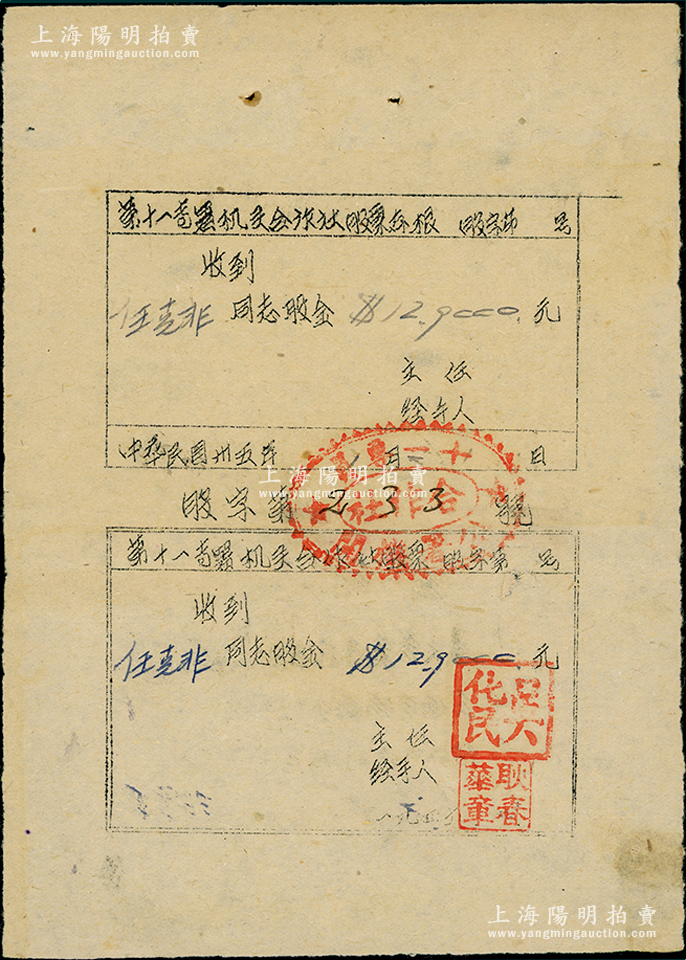 上海陽明拍賣
www.yangmingauction.com
第十八专署机关合作社股票存根 股字第 号
收到
任克非 同志股金 $12.9000. 元
主任
经手人
中华民国卅五年 月 日
上海陽明拍賣
www.yangmingauction.com
合作社
股字第 233 號
第十八专署机关合作社股票 股字第 号
收到
任克非 同志股金 $12.9000. 元
主任
经手人
耿春華章
上海陽明拍賣
www.yangmingauction.com